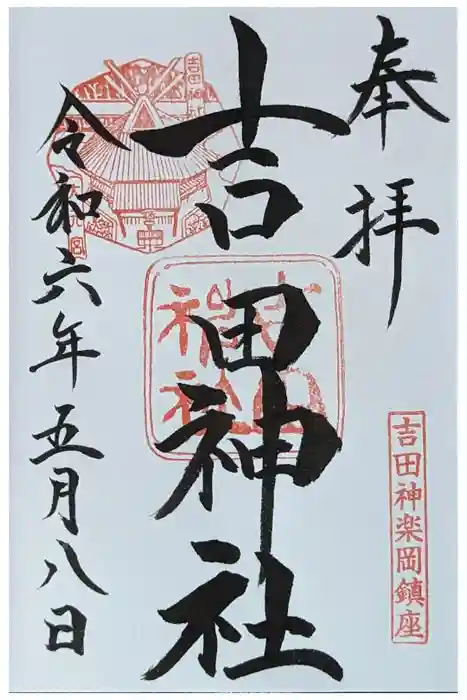 奉拝
吉田神楽岡鎮座
吉田神社
吉田神社
令和六年五月八日